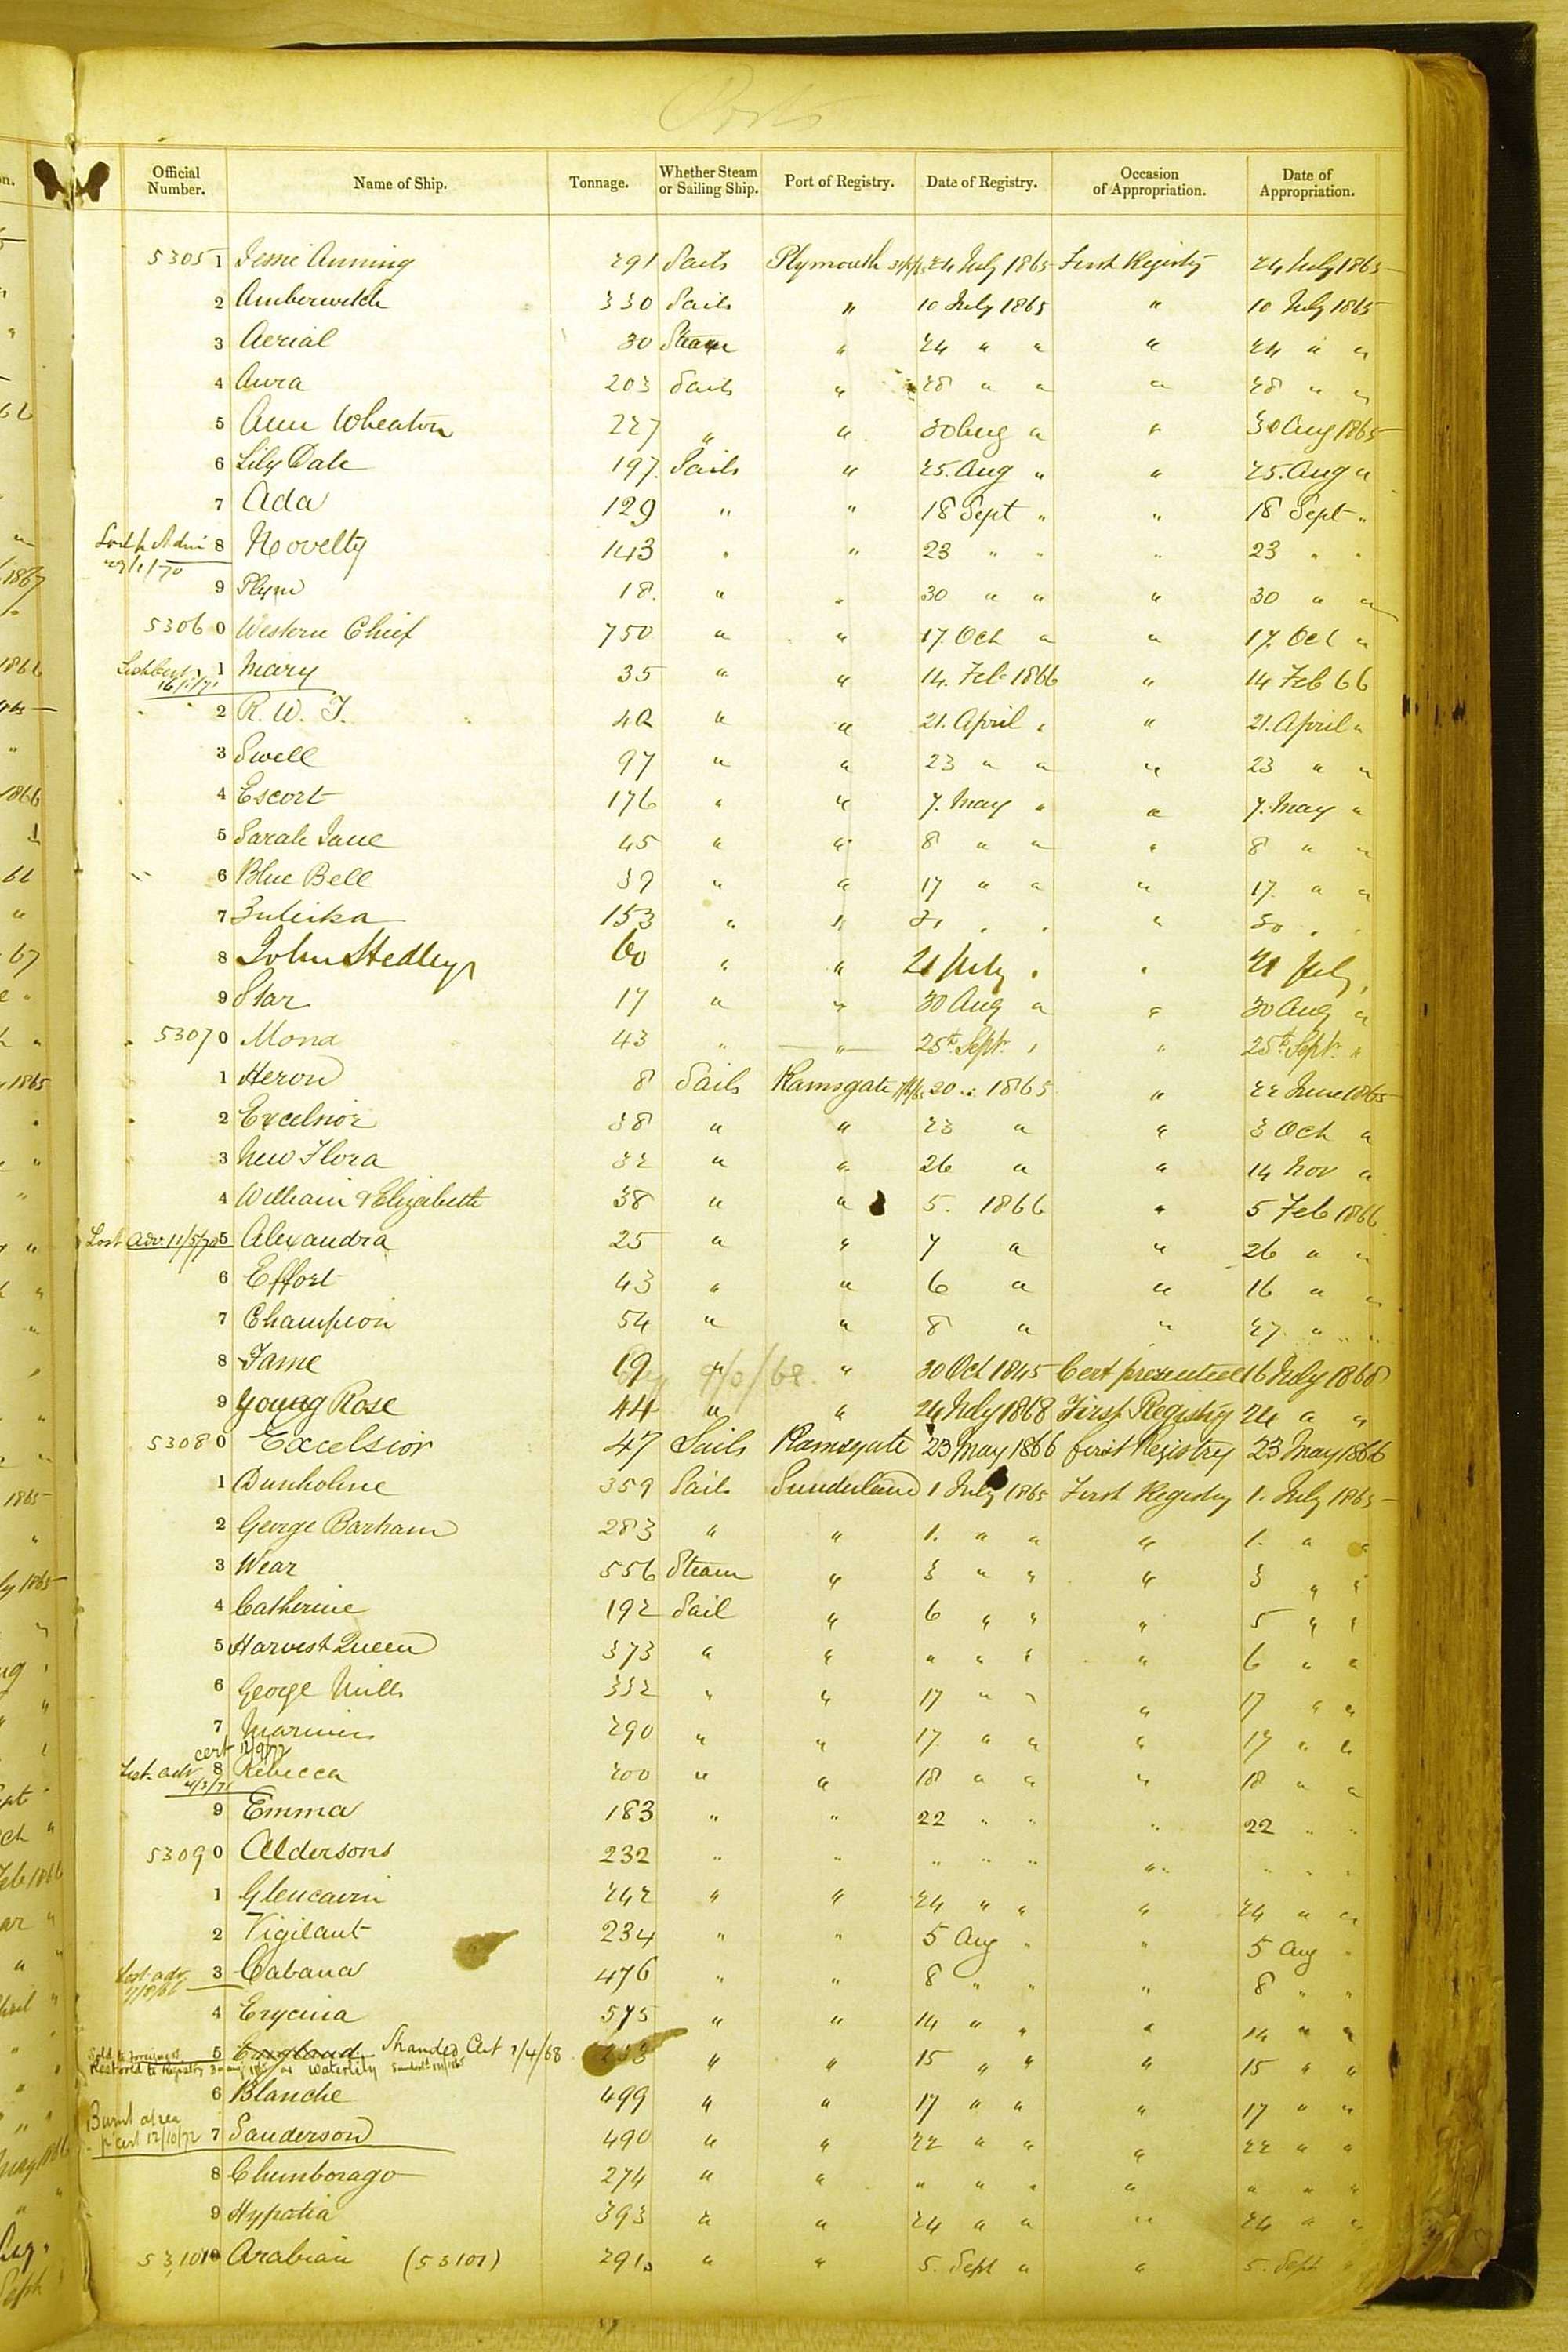 Ports
Official Number. Name of Ship. Tonnage. Whether Steam or Sailing Ship. Port of Registry. Date of Registry. Occasion of Appropriation. Date of Appropriation.
53051 Jessie Anning 291 Sails Plymouth 24 July 1865 First Registry 24 July 1865
2 Amberwitch 330 Sails " 10 July 1865 " 10 July 1865
3 Aerial 30 Steam " 24 " " " 24 " "
4 Aura 203 Sails " 28 " " " 28 " "
5 Ann Wheaton 227 " " 30 Aug " " 30 Aug 1865
6 Lily Dale 197 Sails " 25. Aug " " 25. Aug "
7 Ada 129 " " 18 Sept " " 18 Sept "
8 Novelty 143 " " 23 " " " 23 " "
29/1/70
9 Plym 18. " " 30 " " " 30 " "
53060 Western Chief 750 " " 17. Oct " " 17. Oct "
1 Mary 35 " " 14. Feb 1866 " 14 Feb 66
2 R. W. J. 42 " " 21. April " " 21. April "
3 Swell 97 " " 23 " " " 23 " "
4 Escort 176 " " 7. May " " 7. May "
5 Sarah Jane 45 " " 8 " " " 8 " "
6 Blue Bell 39 " " 17 " " " 17. " "
7 Zuleika 153 " " 31 " " " 30 " "
8 John Hedley 60 " " 21 July " " 21 July "
9 Star 17 " " 30 Aug " " 30 Aug "
53070 Mona 43 " " 25th Sept. " " 25th Sept. "
1 Heron 8 Sails Ramsgate 20 " 1865 " 22 June 1865
2 Excelsior 38 " " 23 " " 3 Oct "
3 New Flora 32 " " 26 " " 14 Nov "
4 William & Elizabeth 38 " " 5. 1866 " 5 Feb 1866
Lost adv. 11/5/70 5 Alexandra 25 " " 7 " " 26 " "
6 Effort 43 " " 6 " " 16 " "
7 Champion 54 " " 8 " " 27 " "
8 Fame 19 " " 30 Oct 1845 Cert presented 16 July 1868
9 Young Rose 44 " " 24 July 1868 First Registry 24 " "
53080 Excelsior 47 Sails Ramsgate 23 May 1866 first Registry 23 May 1866
1 Dunholme 359 Sails Sunderland 1 July 1865 First Registry 1. July 1865
2 George Barham 283 " " 1. " " " 1. " "
3 Wear 556 Steam " 3 " " " 3 " "
4 Catherine 192 Sail " 6 " " " 5 " "
5 Harvest Queen 373 " " " " " " 6 " "
6 George Mills 332 " " 17 " " " 17 " "
7 Mariner 290 " " 17. " " " 17 " "
cert 12/9/72
Lost adv 8 Rebecca 200 " " 18 " " " 18 " "
4/3/71
9 Emma 183 " " 22 " " " 22 " "
53090 Aldersons 232 " " " " " " " " "
1 Glencairn 242 " " 24 " " " 24 " "
2 Vigilant 234 " " 5 Aug " " 5 Aug "
Lost adv 3 Cabana 476 " " 8 " " " 8 " "
4 Erycina 575 " " 14 " " " 14 " "
Sold to Foreigners 5 England. Stranded Cert 1/4/68 " " 15 " " " 15 " "
Restored to Registry as Waterlily
6 Blanche 499 " " 17 " " " 17 " "
Burnt at sea
p cert 12/10/72 7 Sanderson 490 " " 22 " " " 22 " "
8 Chimborago 274 " " " " " " " " "
9 Hypatia 393 " " 24 " " " 24 " "
53100 Arabian (53101) 291 " " 5. Sept " " 5. Sept "